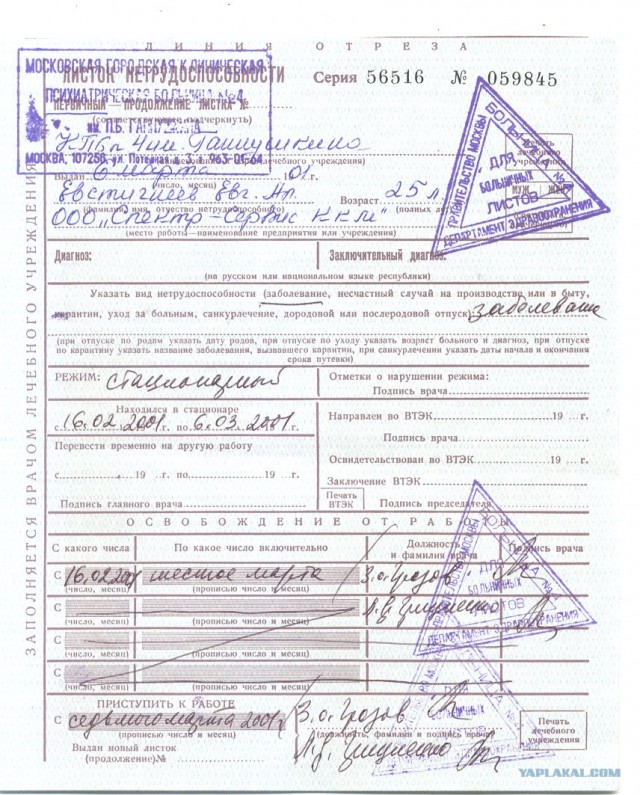 ЛИНИЯ ОТРЕЗА
МОСКОВСКАЯ ГОРОДСКАЯ КЛИНИЧЕСКАЯ
ПСИХИАТРИЧЕСКАЯ БОЛЬНИЦА № 4
им. П.Б. ГАННУШКИНА
МОСКВА, 107258, ул. 963-01-64
ЛИСТОК НЕТРУДОСПОСОБНОСТИ Серия 56516 № 059845
ПЕРВИЧНЫЙ — ПРОДОЛЖЕНИЕ ЛИСТКА №
(соответствующее подчеркнуть)
4 им. Ганнушкина
лечебного учреждения)
Выдан 6 марта
(число, месяц)
Евстигнеев Евг. Возраст 25 л
(фамилия, имя, отчество нетрудоспособного) (полных
муж. жен.
ООО „Спектр-
(место работы—наименование предприятия или учреждения)
ПРАВИТЕЛЬСТВО МОСКВЫ
БОЛЬНИЦА №
ДЛЯ
БОЛЬНИЧНЫХ
ЛИСТОВ
ДЕПАРТАМЕНТ ЗДРАВООХРАНЕНИЯ
Печать
лечебного
учреждения
Диагноз: Заключительный диагноз:
(на русском или национальном языке республики)
Указать вид нетрудоспособности (заболевание, несчастный случай на производстве или в быту,
карантин, уход за больным, санкурлечение, дородовой или послеродовой отпуск) заболевание
(при отпуске по родам указать дату родов, при отпуске по уходу указать возраст больного и диагноз, при отпуске
по карантину указать название заболевания, вызвавшего карантин, при санкурлечении указать даты начала и окончания
срока путевки)
РЕЖИМ: стационарный
Отметки о нарушении режима:
Подпись врача
Находился в стационаре
с 16.02 2001 по 6.03 2001
Направлен во ВТЭК 19 г.
Подпись врача
Перевести временно на другую работу
Освидетельствован во ВТЭК 19 г.
с 19 г. по 19 г.
Заключение ВТЭК
Подпись главного врача
Печать
ВТЭК
Подпись председателя
ОСВОБОЖДЕНИЕ ОТ РАБОТЫ
С какого числа По какое число включительно Должность
и фамилия врача Подпись врача
С 16.02 2001 шестое марта З.о. Грозов
(число, месяц) (прописью число и месяц)
С Гриценко
(число, месяц) (прописью число и месяц)
С
(число, месяц) (прописью число и месяц)
С
(число, месяц) (прописью число и месяц)
ПРАВИТЕЛЬСТВО МОСКВЫ
БОЛЬНИЦА №
ДЛЯ
БОЛЬНИЧНЫХ
ЛИСТОВ
ДЕПАРТАМЕНТ ЗДРАВООХРАНЕНИЯ
ПРИСТУПИТЬ К РАБОТЕ
С седьмого марта 2001 г З.о. Грозов
(прописью число и месяц) (должность, фамилия и подпись врача)
Выдан новый листок Гриценко
(продолжение)№
Печать
лечебного
учреждения
ЗАПОЛНЯЕТСЯ ВРАЧОМ ЛЕЧЕБНОГО УЧРЕЖДЕНИЯ
YAPLAKAL.COM